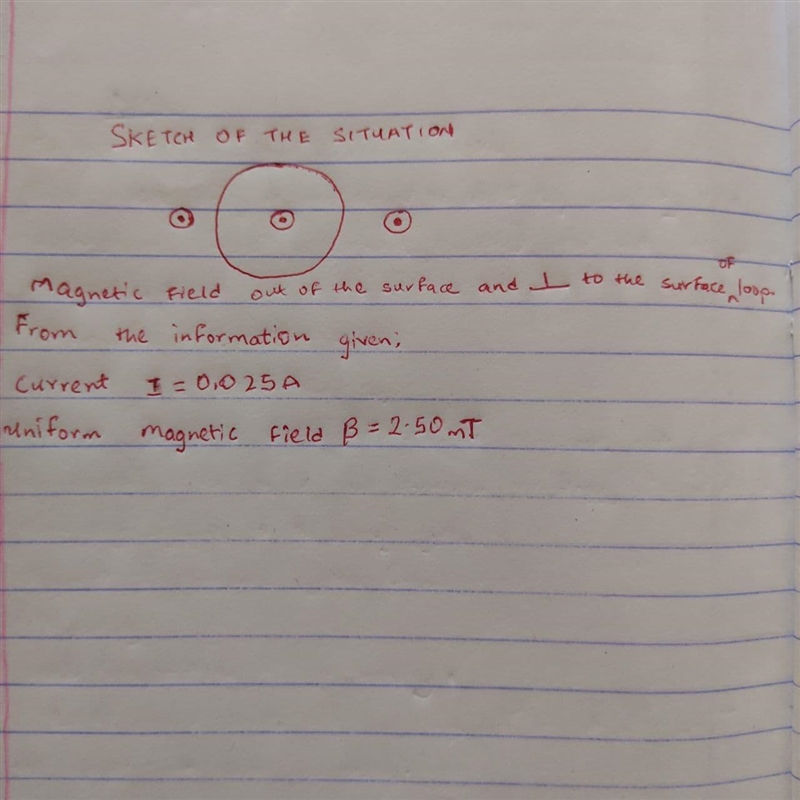 SKETCH OF THE SITUATION
Magnetic Field out of the surface and ⊥ to the surface of loop.
From the information given;
Current I = 0.025A
Uniform magnetic Field B = 2.50 mT